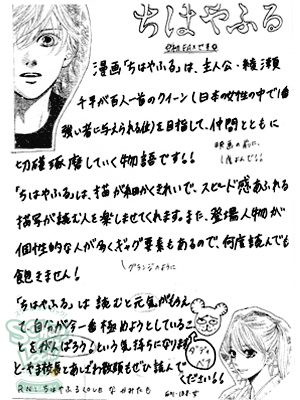 ちはやふる
漫画「ちはやふる」は、主人公・綾瀬
千早が百人一首のクイーン(日本の女性の中で1番
強い者に与えられる位)を目指して、仲間とともに
切磋琢磨していく物語です!!
「ちはやふる」は、描が細かくきれいで、スピード感あふれる
描写が読む人を楽しませてくれます。また、登場人物が
個性的な人が多くギャグ要素もあるので、何度読んでも
飽きません!
「ちはやふる」は読むと元気がもらえ
て、自分が今一番極めようとしているこ
とをがんばろう!という気持ちになります
ぜひ読んで
ください!!
ダディ
ベア
R.N. ちはやふるLOVE